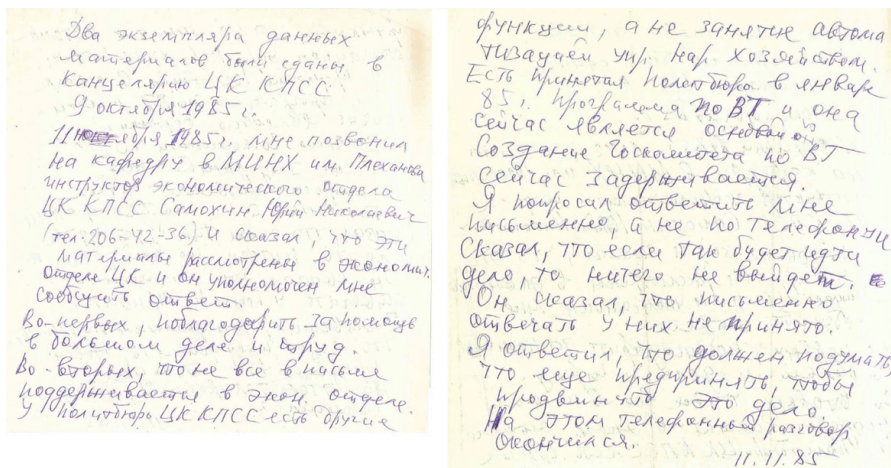 Два экземпляра данных
материалов были сданы в
канцелярию ЦК КПСС
9 октября 1985 г.
11 ноября 1985 г. мне позвонил
на кафедру в МИНХ им. Плеханова
инструктор экономического отдела
ЦК КПСС Самохин Юрий Николаевич
(тел. 206-42-36) и сказал, что эти
материалы рассмотрены в экономич.
отделе ЦК и он уполномочен мне
сообщить ответ.
Во-первых, поблагодарить за помощь
в большом деле и труд.
Во-вторых, что не все в письме
поддерживается в экон. отделе.
У политбюро ЦК КПСС есть другие
функции, а не занятие автома
тизацией упр. нар. хозяйством.
Есть принятая Политбюро в январе
85 г. программа по ВТ и она
сейчас является основой
Создание Госкомитета по ВТ
сейчас задерживается.
Я попросил ответить мне
письменно, а не по телефону и
сказал, что если так будет идти
дело, то ничего не выйдет.
Он сказал, что письменно
отвечать у них не принято.
Я ответил, что должен подумать,
что еще предпринять, чтобы
продвинуть это дело.
На этом телефонный разговор
окончился.
11.11.85